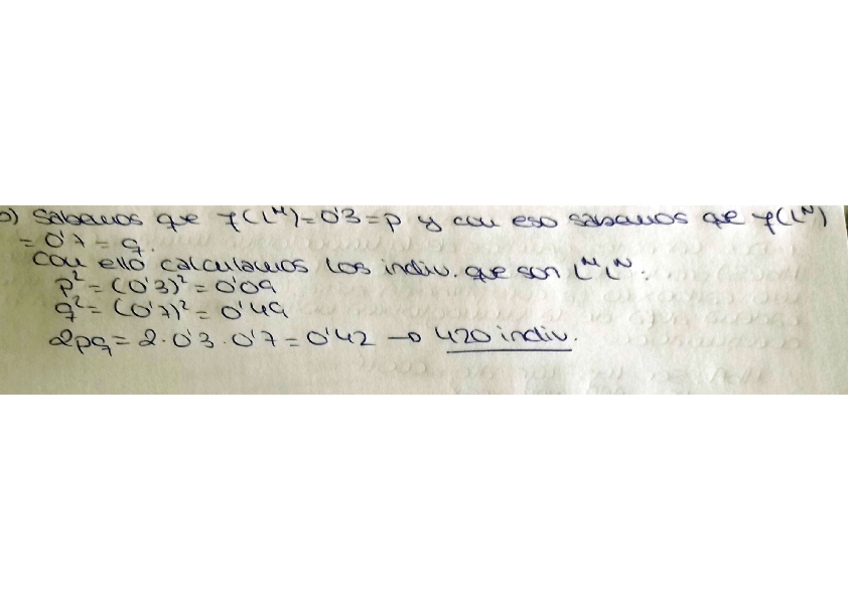 b) Sabemos que f(Lᴹ)=0'3=p y con eso sabemos que f(Lᴺ)
= 0'7 = q.
Con ello calculamos los indiv. que son LᴹLᴺ:
p² = (0'3)² = 0'09
q² = (0'7)² = 0'49
2pq = 2·0'3·0'7 = 0'42 → 420 indiv.